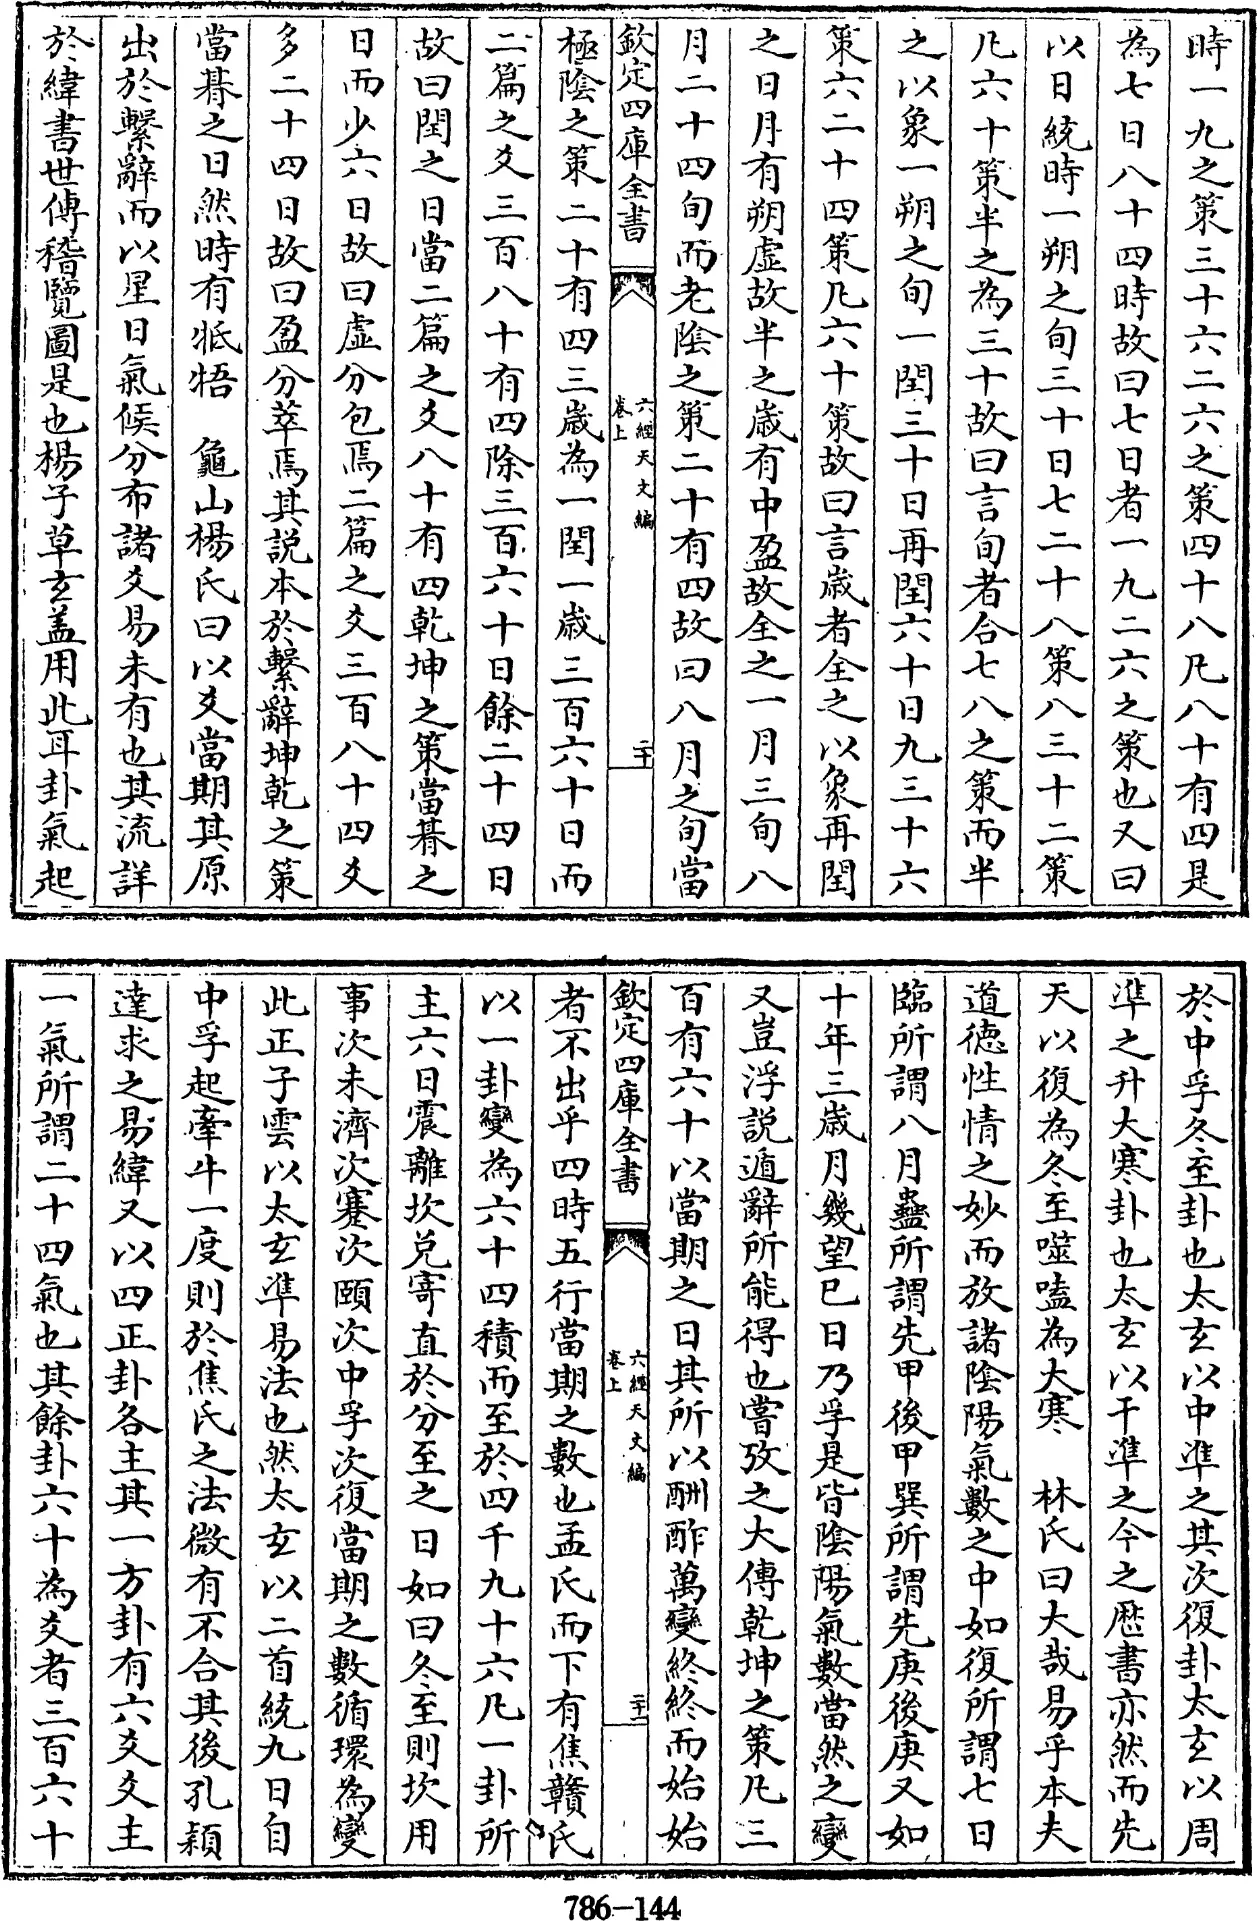 時一九之策三十六二六之策四十八凡八十有四是
為七日八十四時故曰七日者一九二六之策也又曰
以日統時一朔之旬三十日七二十八策八三十二策
凡六十策半之為三十故曰言旬者合七八之策而半
之以象一朔之旬一閏三十日再閏六十日九三十六
策六二十四策凡六十策故曰言嵗者全之以象再閏
之日月有朔虚故半之嵗有中盈故全之一月三旬八
月二十四旬而老陰之策二十有四故曰八月之旬當
欽定四庫全書
六經天文編
卷上
二十
極陰之策二十有四三嵗為一閏一嵗三百六十日而
二篇之爻三百八十有四除三百六十日餘二十四日
故曰閏之日當二篇之爻八十有四乾坤之策當朞之
日而少六日故曰虚分包焉二篇之爻三百八十四爻
多二十四日故曰盈分萃焉其説本於繫辭坤乾之策
當朞之日然時有牴牾 龜山楊氏曰以爻當期其原
出於繫辭而以星日氣候分布諸爻易未有也其流詳
於緯書世傳稽覽圖是也楊子草玄盖用此耳卦氣起
於中孚冬至卦也太玄以中準之其次復卦太玄以周
準之升大寒卦也太玄以干準之今之歴書亦然而先
天以復為冬至噬嗑為大寒 林氏曰大哉易乎本夫
道德性情之妙而放諸陰陽氣數之中如復所謂七日
臨所謂八月蠱所謂先甲後甲巽所謂先庚後庚又如
十年三嵗月幾望巳日乃孚是皆陰陽氣數當然之變
又豈浮説遁辭所能得也嘗攷之大傳乾坤之策凡三
百有六十以當期之日其所以酬酢萬變終終而始始
欽定四庫全書
六經天文編
卷上
二十一
者不出乎四時五行當期之數也孟氏而下有焦贛氏
以一卦變為六十四積而至於四千九十六凡一卦所
主六日震離坎兑寄直於分至之日如曰冬至則坎用
事次未濟次蹇次頤次中孚次復當期之數循環為變
此正子雲以太玄準易法也然太玄以二首統九日自
中孚起牽牛一度則於焦氏之法微有不合其後孔穎
達求之易緯又以四正卦各主其一方卦有六爻爻主
一氣所謂二十四氣也其餘卦六十為爻者三百六十
786-144